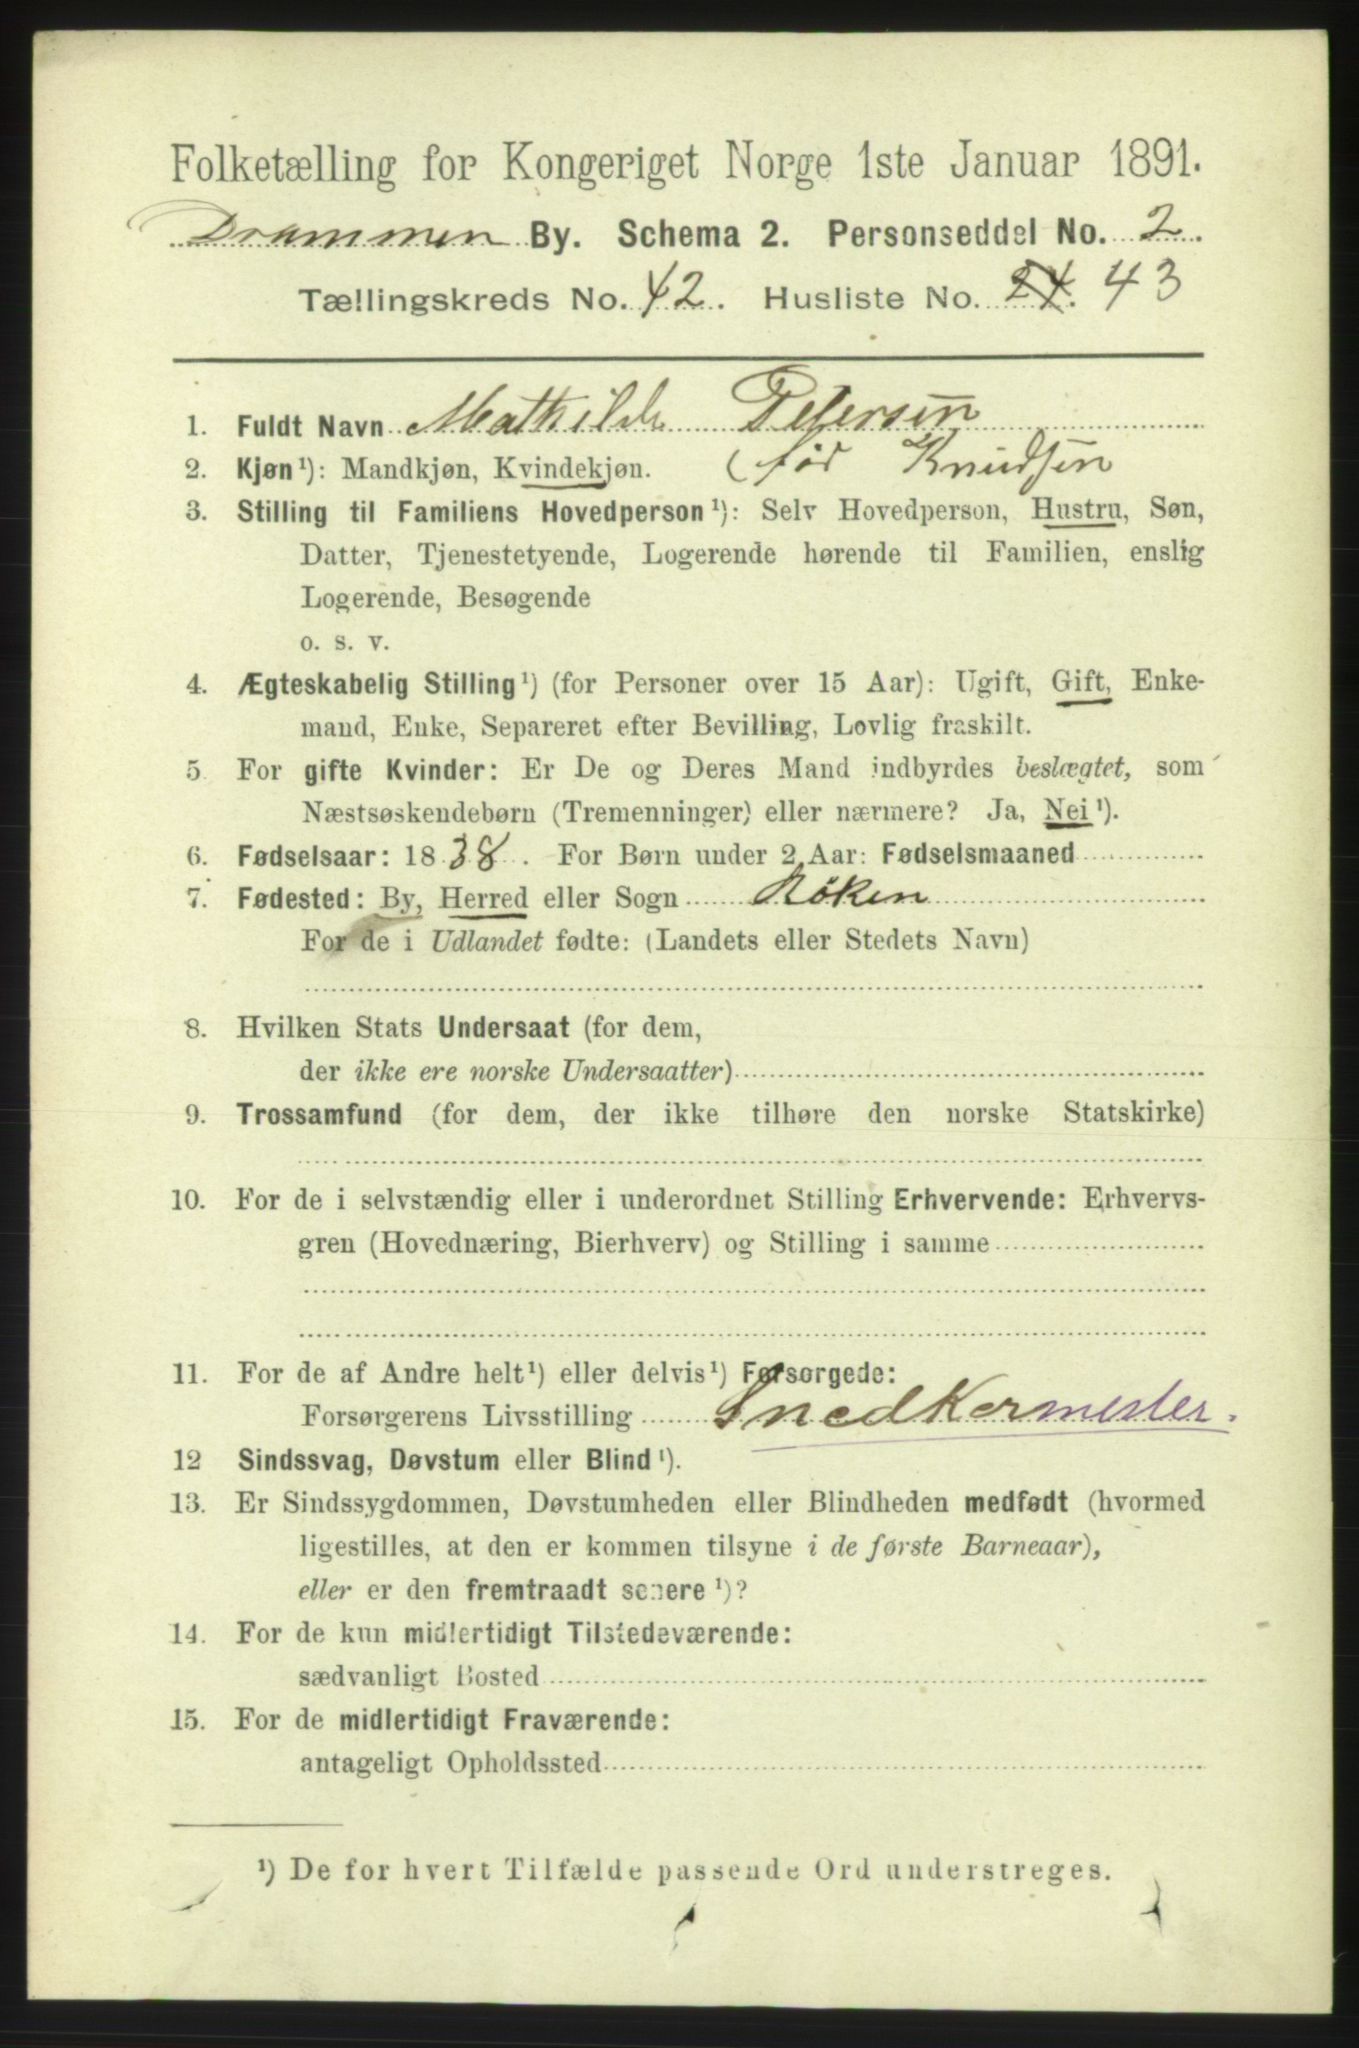 Folketælling for Kongeriget Norge 1ste Januar 1891.
Drammen By. Schema 2. Personseddel No. 2.
Tællingskreds No. 42. Husliste No. 24. 43
1. Fuldt Navn Mathilde Petersen
2. Kjøn¹): Mandkjøn, Kvindekjøn. (før Knudsen
3. Stilling til Familiens Hovedperson¹): Selv Hovedperson, Hustru, Søn,
Datter, Tjenestetyende, Logerende hørende til Familien, enslig
Logerende, Besøgende
o. s. v.
4. Ægteskabelig Stilling¹) (for Personer over 15 Aar): Ugift, Gift, Enke-
mand, Enke, Separeret efter Bevilling, Lovlig fraskilt.
5 For gifte Kvinder: Er De og Deres Mand indbyrdes beslægtet, som
Næstsøskendebørn (Tremenninger) eller nærmere? Ja, Nei¹).
6. Fødselsaar: 1838. For Børn under 2 Aar: Fødselsmaaned
7. Fødested: By, Herred eller Sogn Røken
For de i Udlandet fødte: (Landets eller Stedets Navn)
8. Hvilken Stats Undersaat (for dem,
der ikke ere norske Undersaatter)
9. Trossamfund (for dem, der ikke tilhøre den norske Statskirke)
10. For de i selvstændig eller i underordnet Stilling Erhvervende: Erhvervs-
gren (Hovednæring, Bierhverv) og Stilling i samme
11. For de af Andre helt¹) eller delvis¹) Forsorgede:
Forsørgerens Livsstilling Snedkermester.
12 Sindssvag, Døvstum eller Blind¹).
13. Er Sindssygdommen, Døvstumheden eller Blindheden medfødt (hvormed
ligestilles, at den er kommen tilsyne i de første Barneaar),
eller er den fremtraadt senere¹)?
14. For de kun midlertidigt Tilstedeværende:
sædvanligt Bosted
15. For de midlertidigt Fraværende:
antageligt Opholdssted
¹) De for hvert Tilfælde passende Ord understreges.